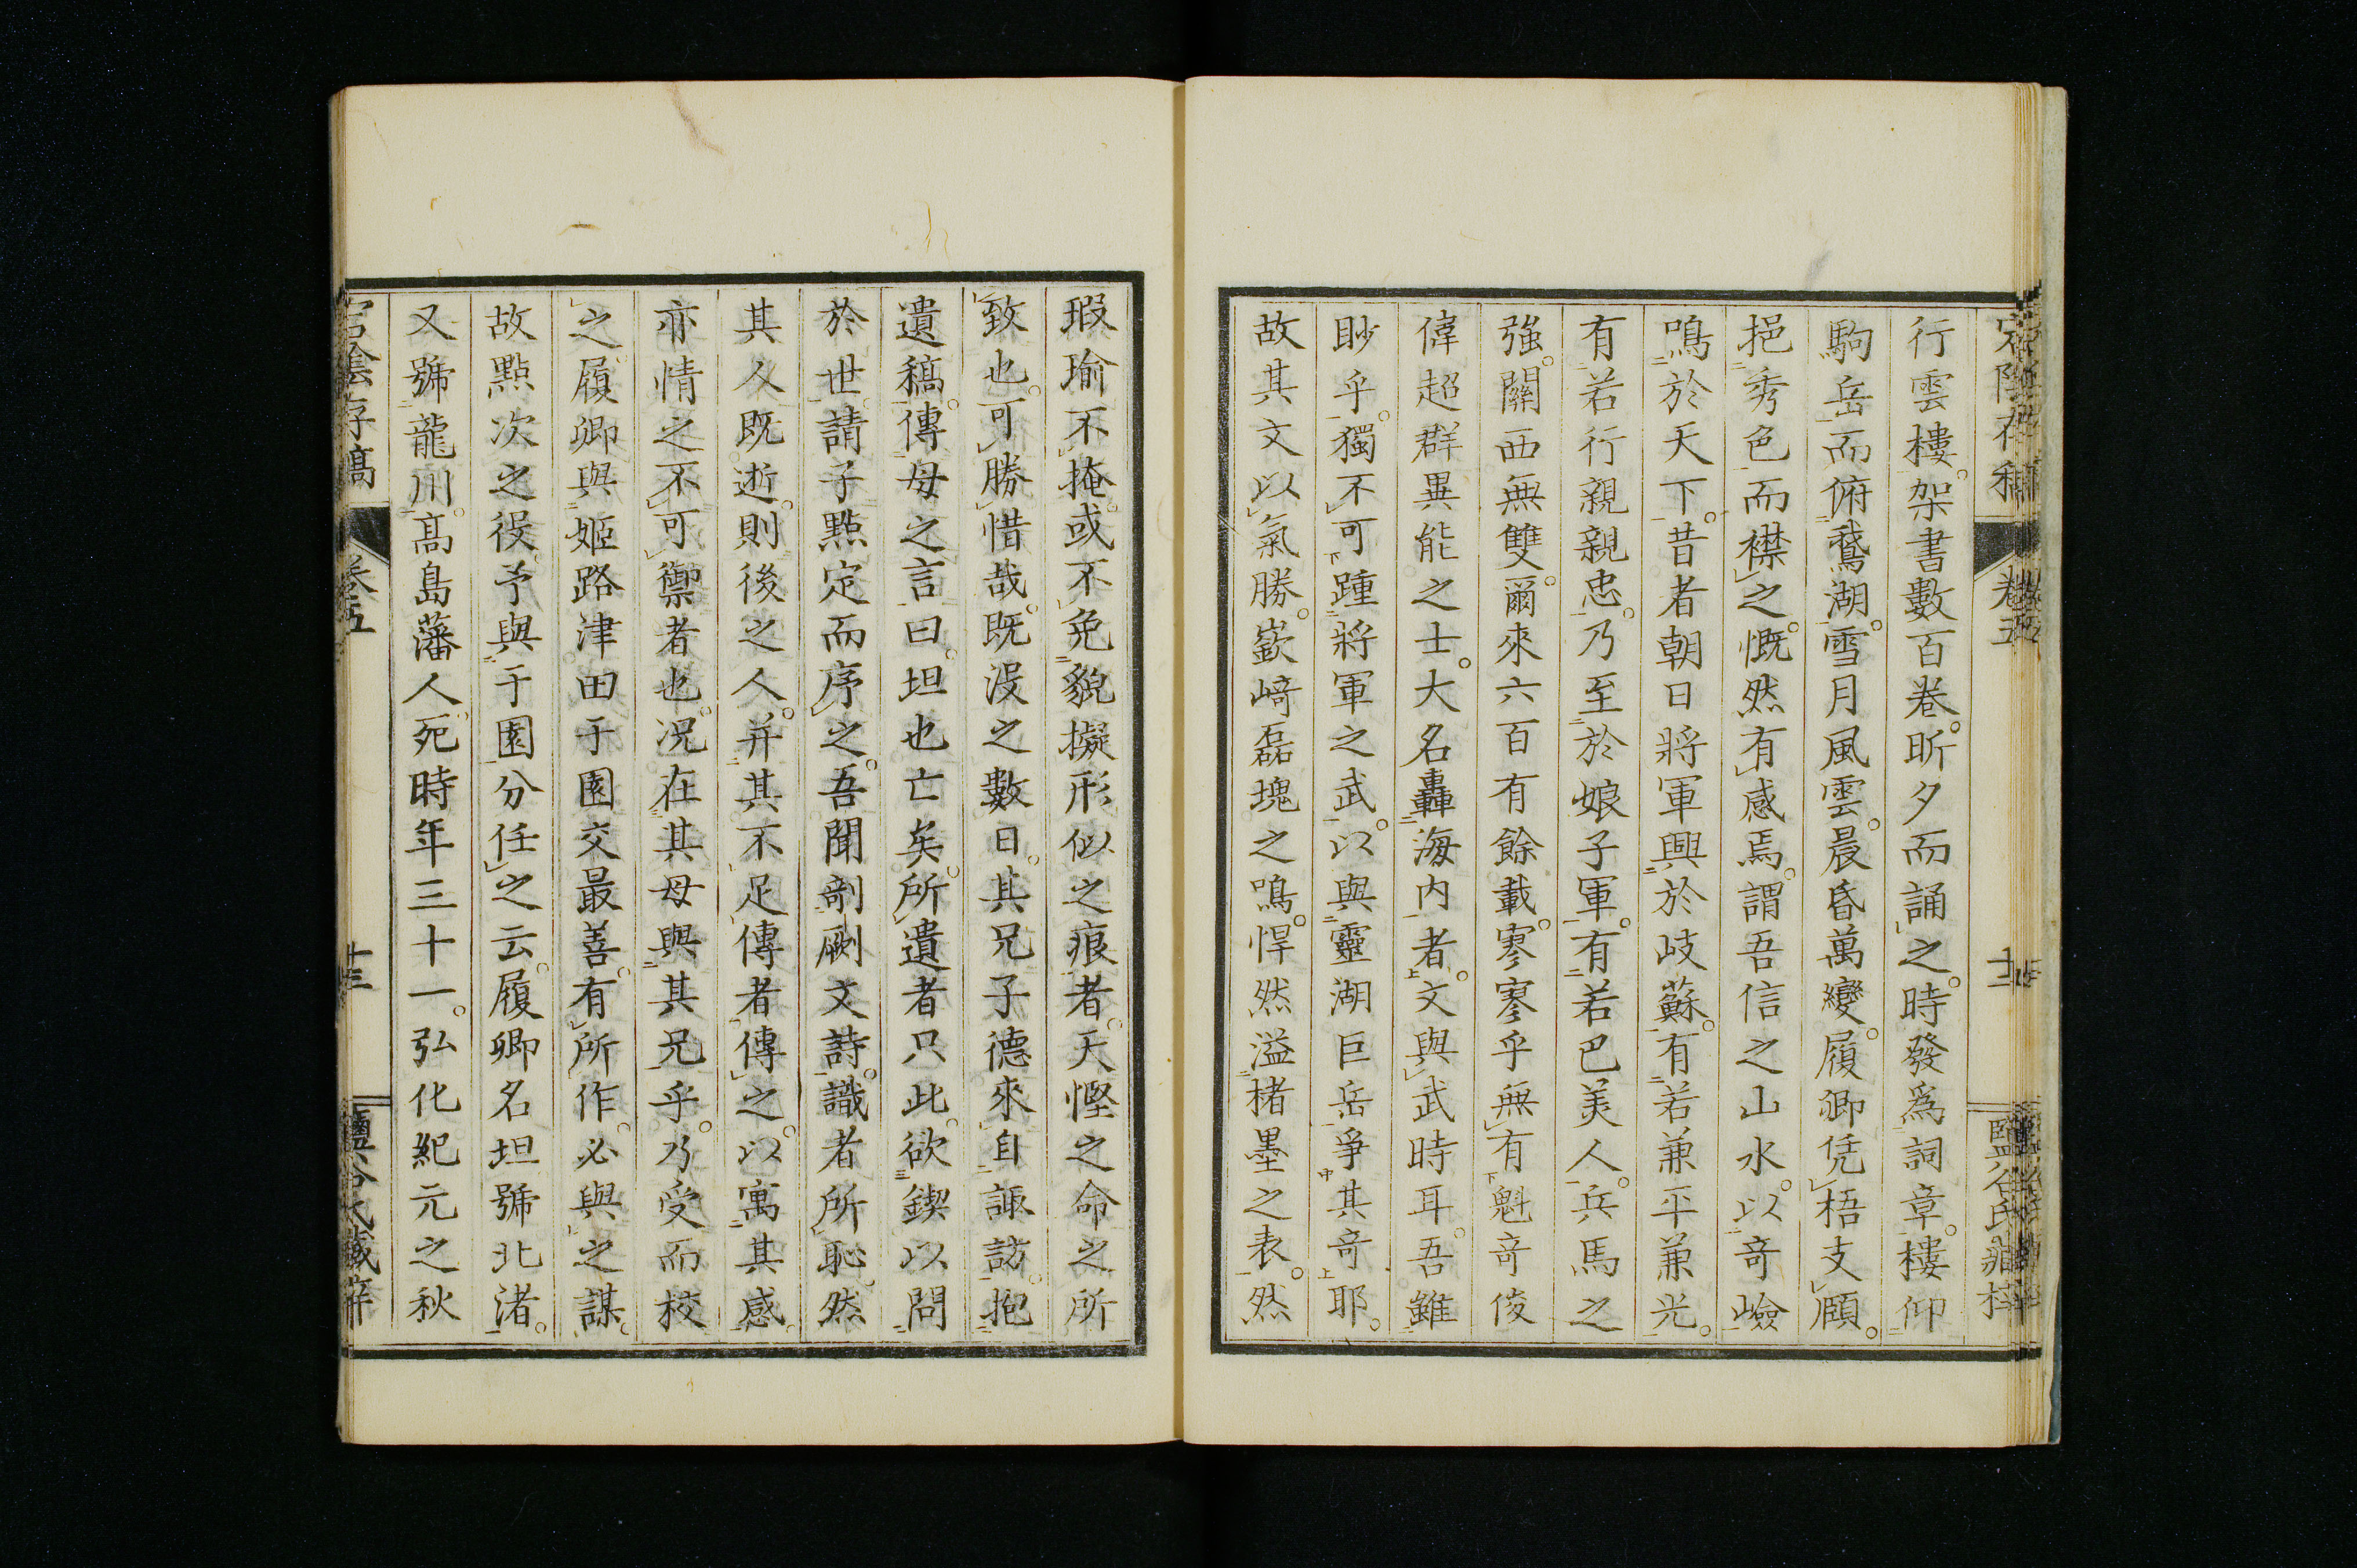 行雲樓。架書數百卷。昕夕而誦之。時發爲詞章。樓仰
駒岳而俯鵞湖。雪月風雲。晨昏萬變。履卿凭梧支頤。
挹秀色而襟之。慨然有感焉。謂吾信之山水。以奇嶮
鳴於天下。昔者朝日將軍興於岐蘇。有若兼平兼光。
有若行親親忠。乃至於娘子軍。有若巴美人。兵馬之
強。關西無雙。爾來六百有餘載。寥寥乎無有魁奇俊
偉超群異能之士。大名轟海内者。文與武時耳。吾雖
眇乎。獨不可踵將軍之武。以與靈湖巨岳爭其奇耶。
故其文以氣勝。嶔崎磊塊之鳴。悍然溢楮墨之表。然
瑕瑜不掩。或不免貌擬形似之痕者。天慳之命之所
致也。可勝惜哉。既沒之數日。其兄子德來自諏訪。抱
遺稿。傳母之言曰。坦也亡矣。所遺者只此。欲鍥以問
於世。請子點定而序之。吾聞剞劂文詩。識者所恥。然
其人既逝。則後之人。并其不足傳者傳之。以寓其感。
亦情之不可禦者也。況在其母與其兄乎。乃受而校
之。履卿與姬路津田于園交最善。有所作。必與之謀。
故點次之役。予與于園分任之云。履卿名坦號北渚。
又號龍川。高島藩人。死時年三十一。弘化紀元之秋
宕陰存稿
卷五
十三